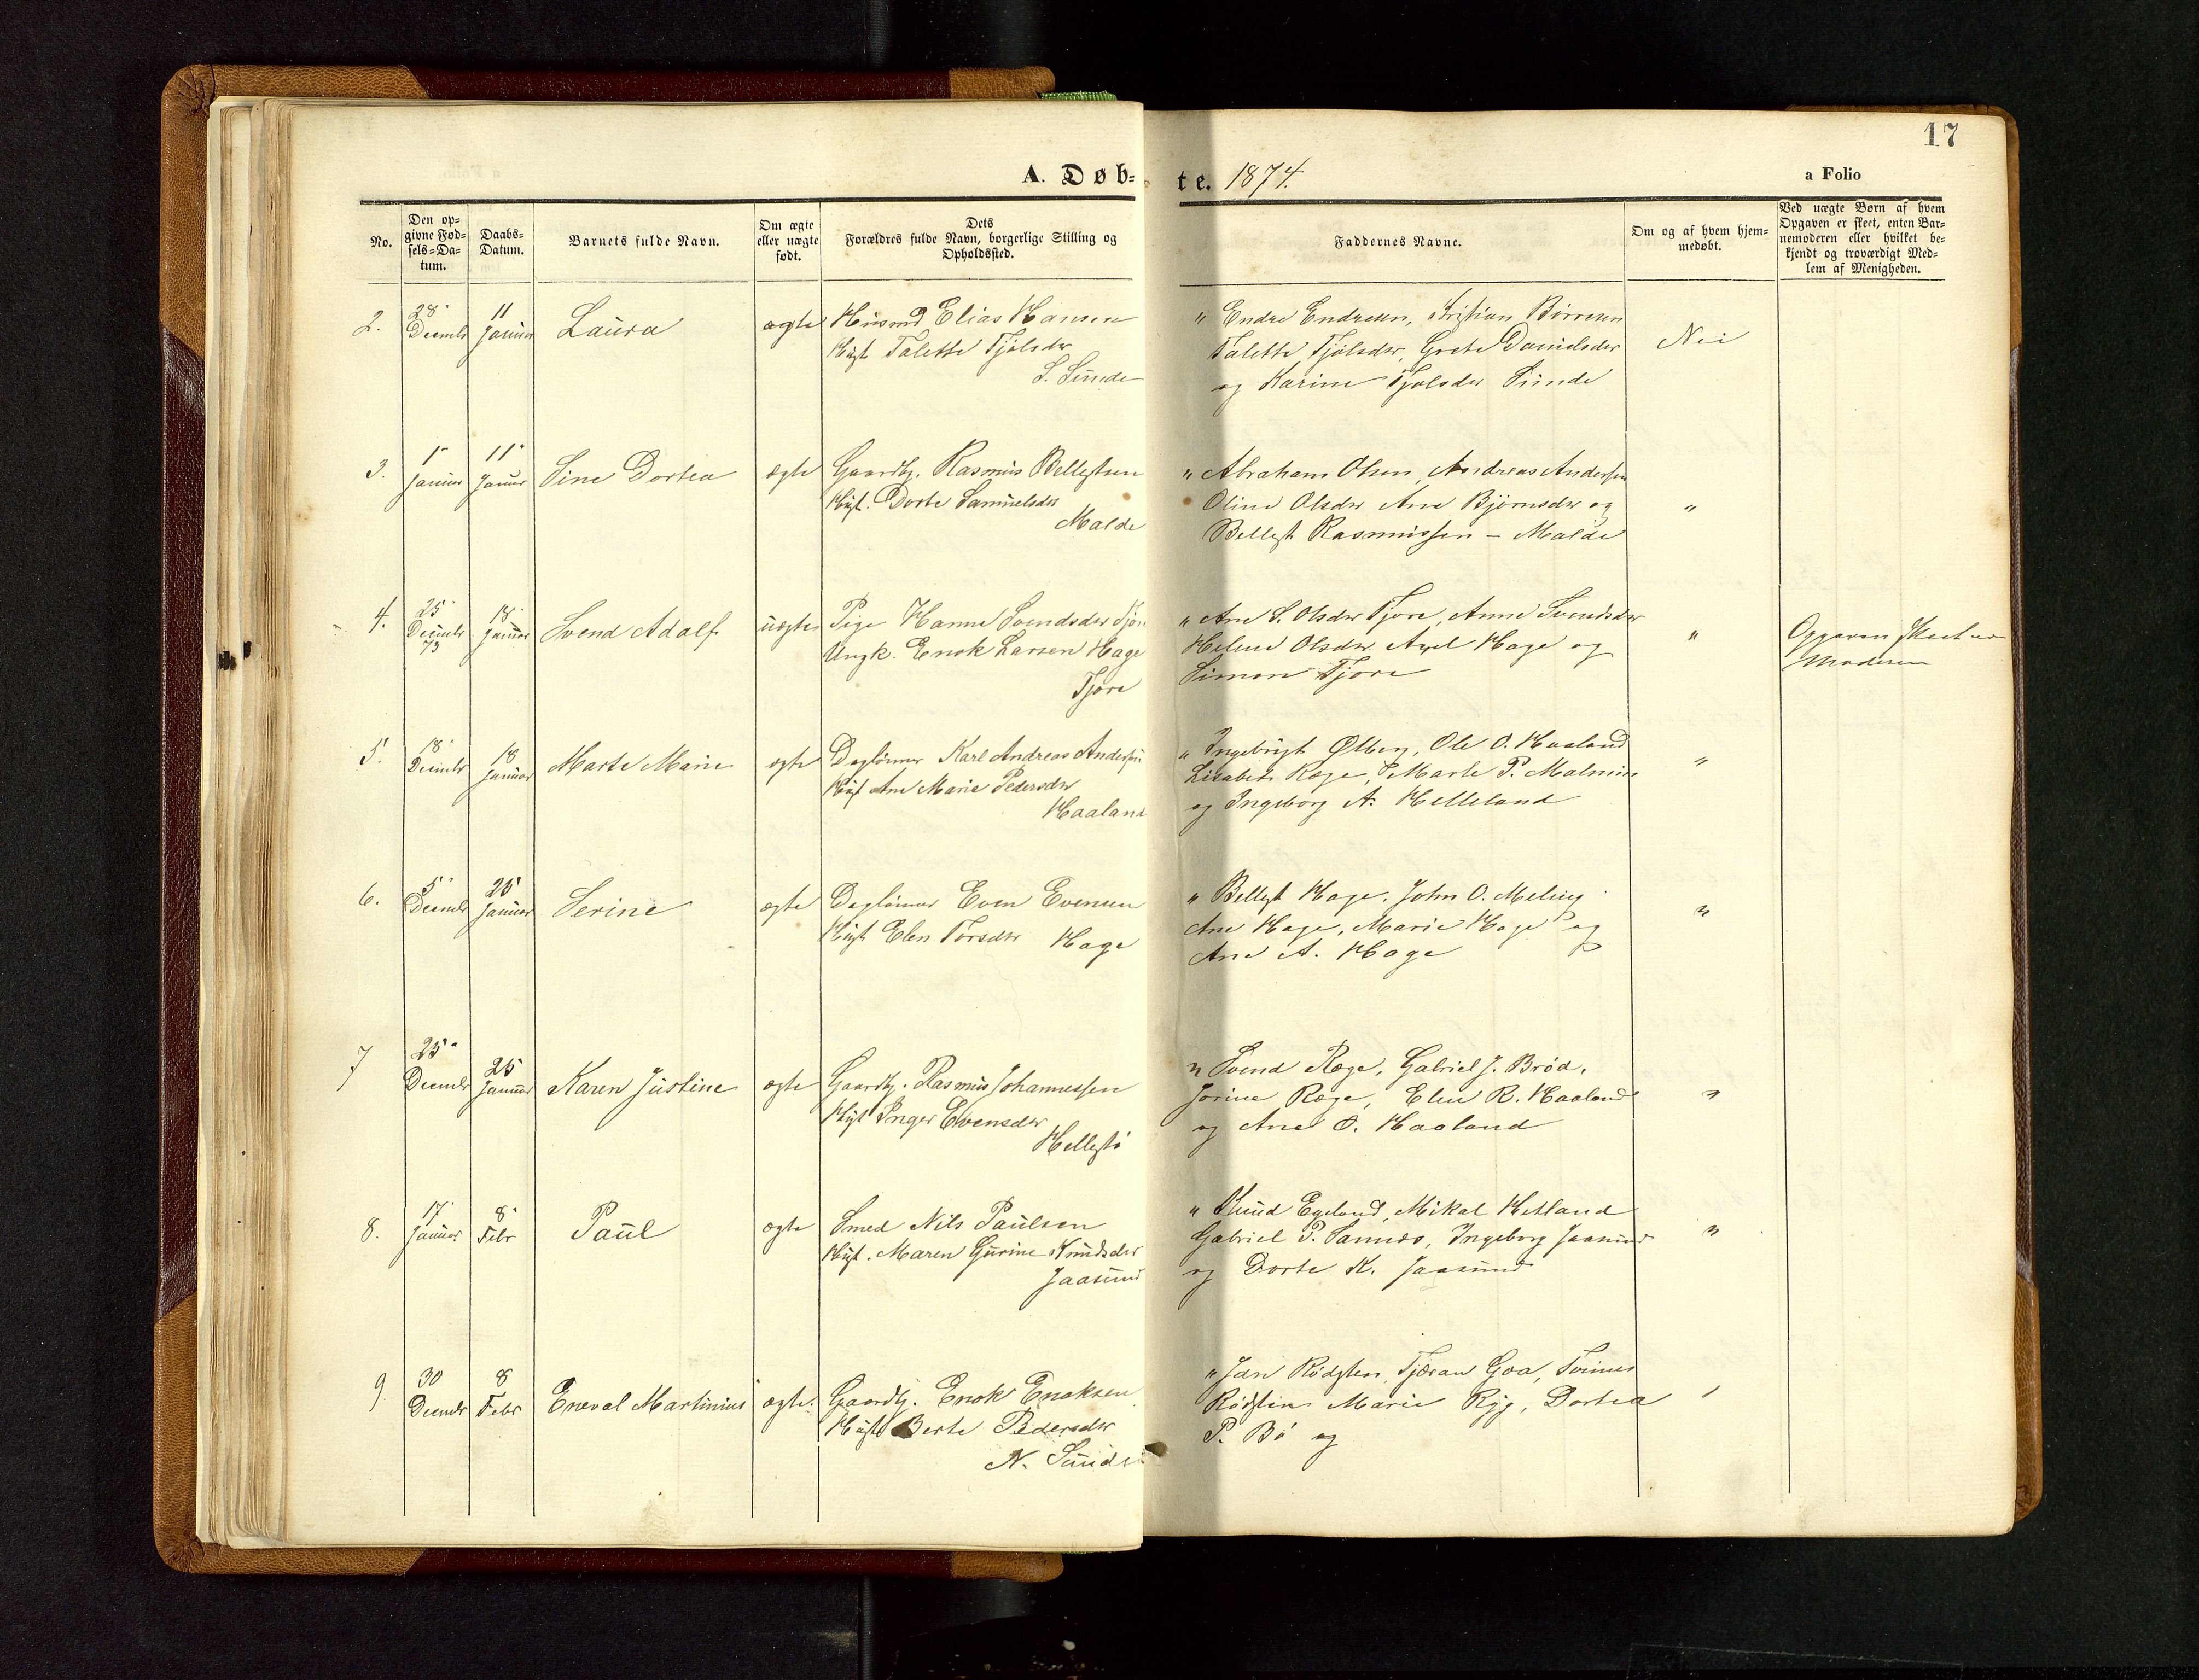 17
A. Døb-
te. 1874.
a Folio
No.
Den op-
givne Fød-
sels-Da-
tum.
Daabs-
Datum.
Barnets fulde Navn.
Om ægte
eller uægte
født.
Dets
Forældres fulde Navn, borgerlige Stilling og
Opholdssted.
Faddernes Navne.
Om og af hvem hjem-
medøbt.
Ved uægte Børn af hvem
Opgaven er skeet, enten Bar-
nemoderen eller hvilket be-
kjendt og troværdigt Med-
lem af Menigheden.
2.
28
Decmbr
11
Januar
Laura
ægte
Husmd Elias Hansen
Hust Talette Tjølsdtr
S. Sunde
" Endre Endresen, Kristian Børresen
Talette Tjølsdtr, Grete Danielsdtr
og Karine Tjølsdtr Sunde
Nei
3.
1
Januar
11
Januar
Sine Dortea
ægte
Gaardbr. Rasmus Bellestsen
Hust. Dorte Samuelsdtr
Malde
" Abraham Olsen, Andreas Andersen
Oline Olsdtr Ane Bjørnsdtr og
Bellest Rasmussen - Malde
"
4.
25
Decmbr
73
18
Januar
Svend Adolf
uægte
Pige Hanne Svendsdtr
Ungk. Enok Larsen Hage
Tjore
" Ane S. Olsdtr Tjore, Anne Svendsdtr
Helene Olsdtr Axel Hage og
Simon Tjore
"
Opgaven skeet av
Moderen
5.
18
Decmbr
18
Januar
Marte Marie
ægte
Daglønner Karl Andreas Andersen
Hust Ane Marie Pedersdtr
Haaland
" Ingebrigt Ølberg, Ole O. Haaland
Lisabet Ræge, Marte P. Malmin
og Ingeborg A. Helleland
"
6.
5
Decmbr
25
Januar
Serine
ægte
Daglønner Even Evensen
Hust Elen Torsdtr Hage
" Bellest Hage. John O. Meling
Ane Hage, Marie Hage og
Ane A. Hage
"
7
25
Decmbr
25
Januar
Karen Justine
ægte
Gaardbr. Rasmus Johannessen
Hust Inger Evensdtr
Hellestø
" Svend Ræge, Gabriel J. Brød,
Jorine Ræge, Elen R. Haaland
og Ane O. Haaland
"
8.
17
Januar
8
Febr
Paul
ægte
Smed Nils Paulsen
Hust. Maren Gurine Knudsdtr
Jaasund
" Knud Egeland, Mikal Hetland
Gabriel P. Sannes, Ingeborg Jaasund
og Dorte K. Jaasund
"
9
30
Decmbr
8
Febr
Eneval Martinius
ægte
Gaardbr. Enok Enoksen
Hust Berte Pedersdtr
N. Sunde
" Jan Rødsten, Tjøran Goa,
Rødsten Marie Ryg, Dortea
P. Bø og
"